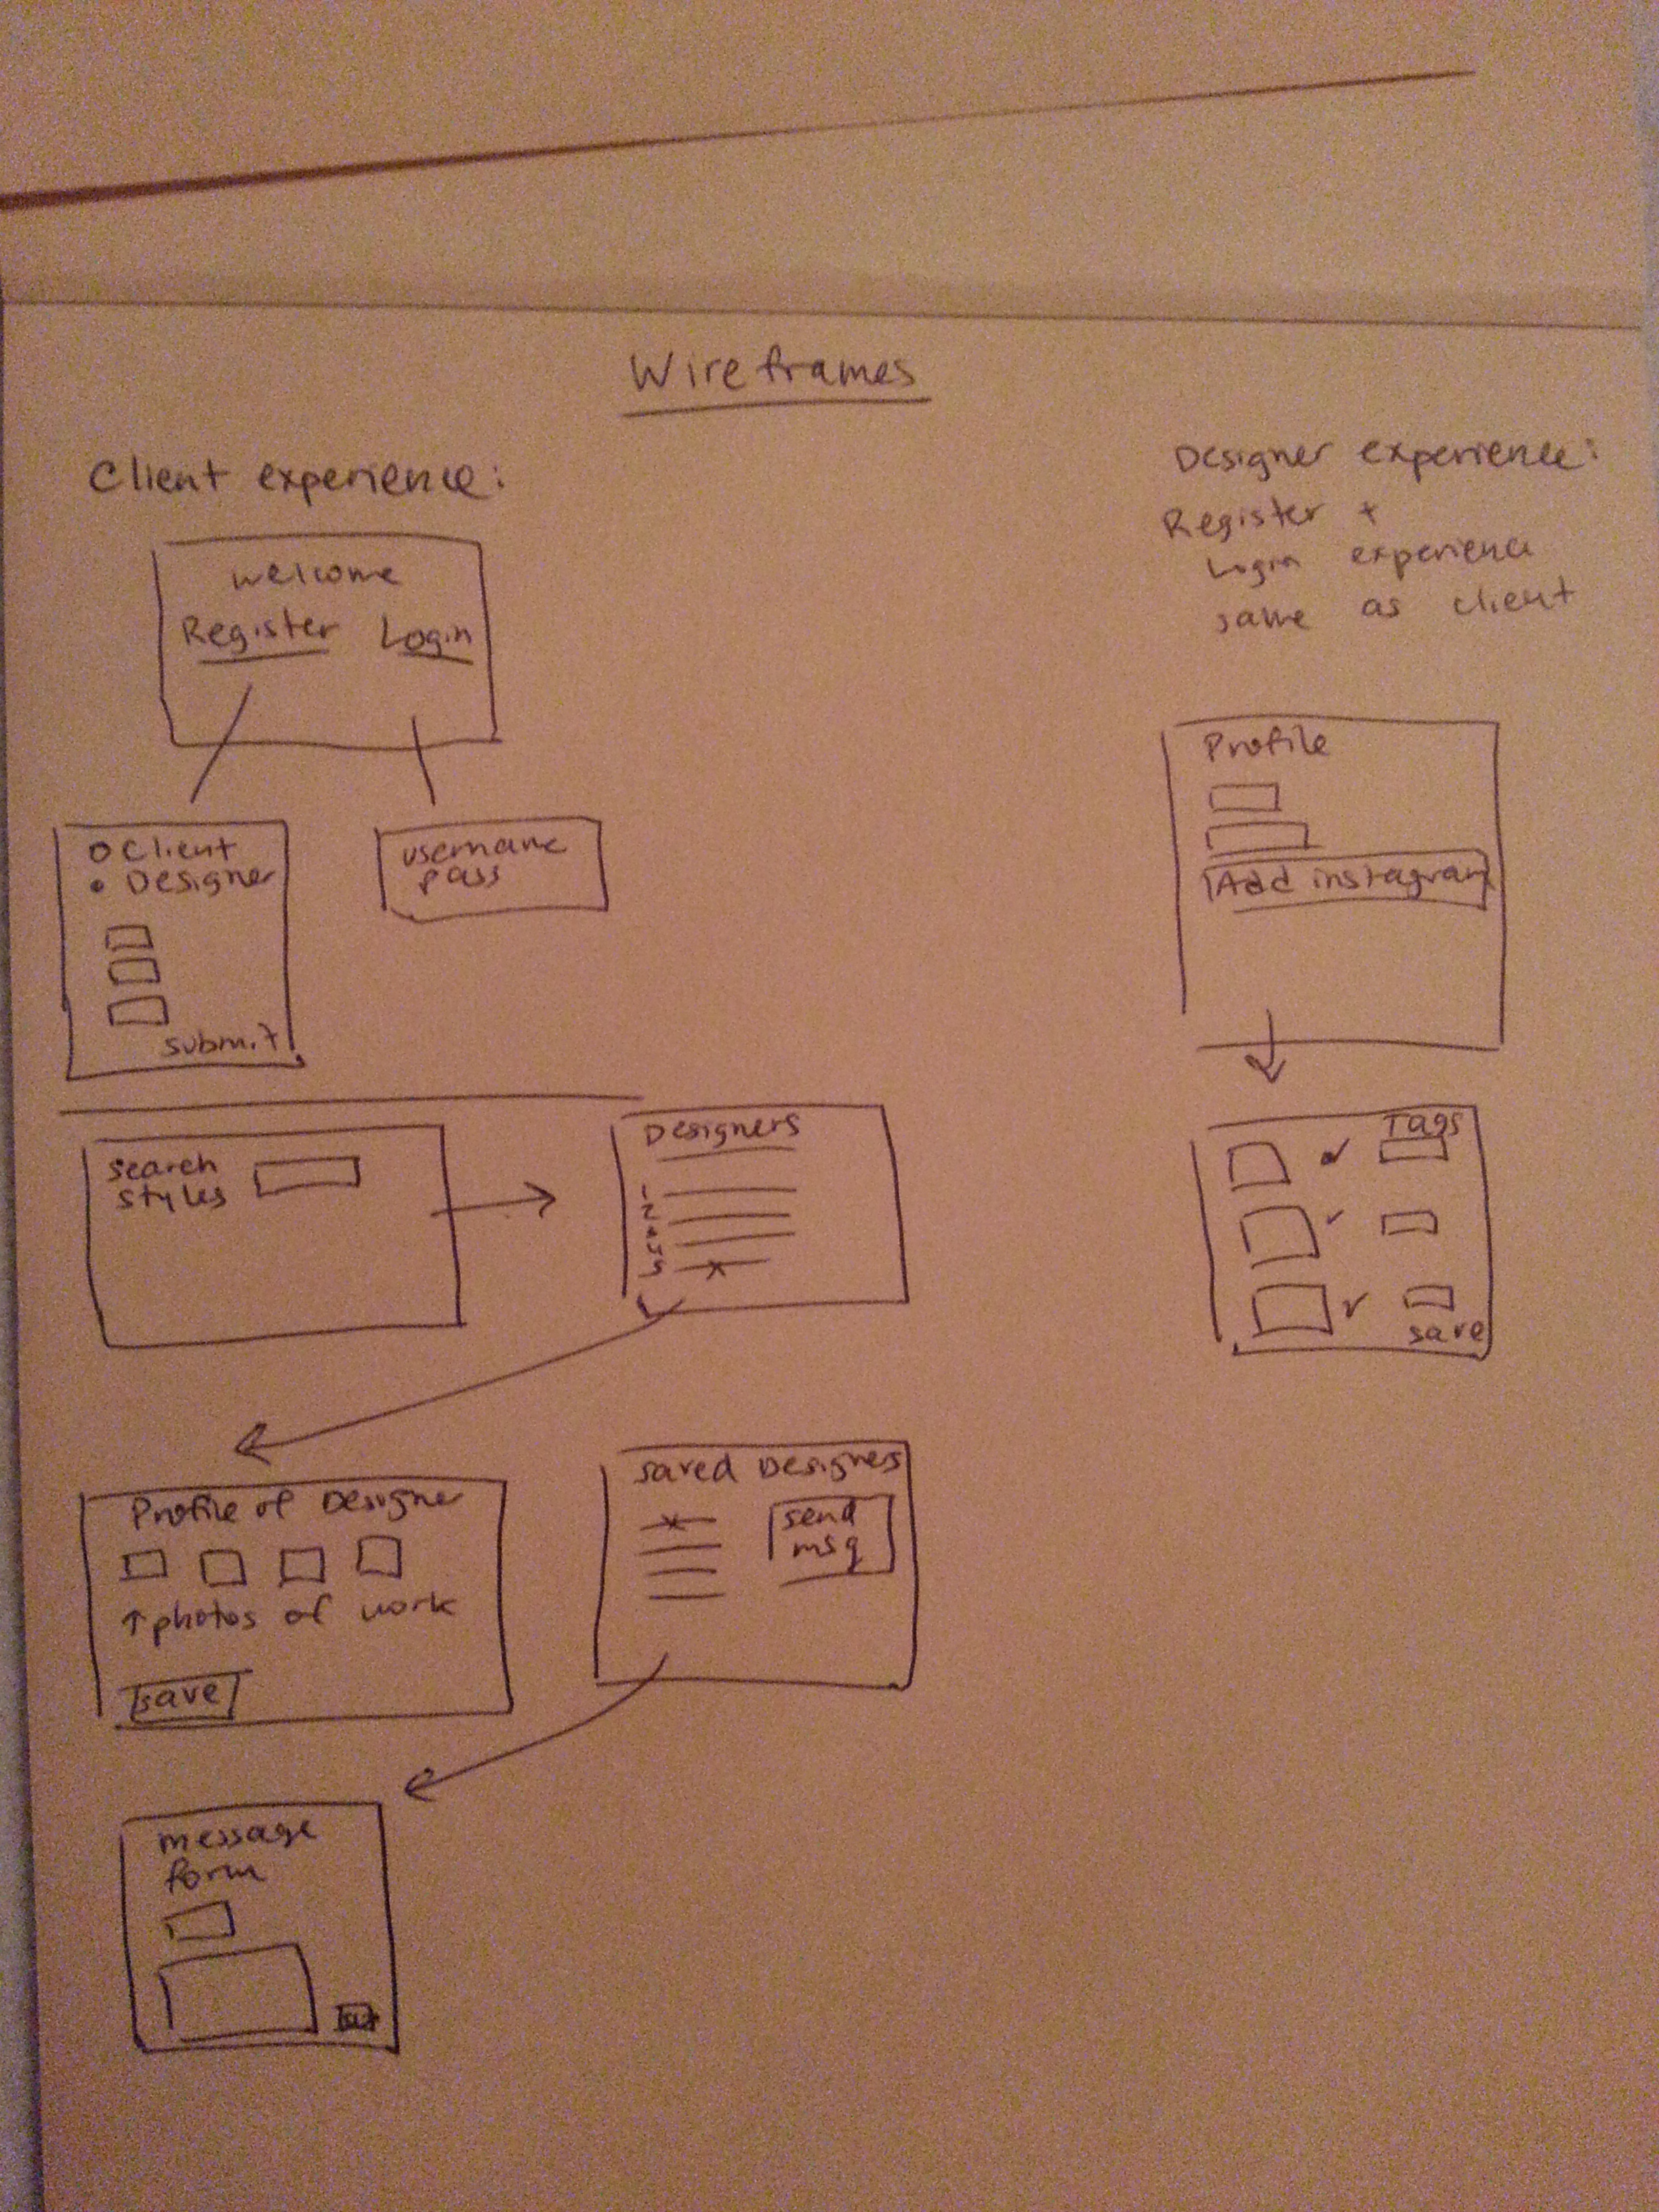 Wireframes
Client experience:
welcome
Register Login
Client
Designer
submit
username
pass
search
styles
Designers
1
2
5
Profile of Designer
↑ photos of work
save
saved Designers
send
msg
message
form
Designer experience:
Register +
Login experience
same as client
Profile
Add instagram
Tags
save